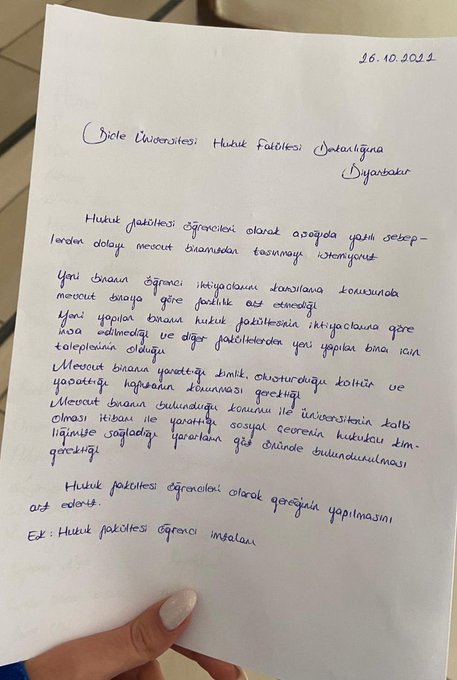 26.10.2022
Dicle Üniversitesi Hukuk Fakültesi Dekanlığına
Diyarbakır
Hukuk fakültesi öğrencileri olarak aşağıda yazılı sebep-
lerden dolayı mevcut binamızdan taşınmayı istemiyoruz
Yeni binanın öğrenci ihtiyaçlarını karşılama konusunda
mevcut binaya göre farklılık arz etmediği
Yeni yapılan binanın hukuk fakültesinin ihtiyaçlarına göre
inşa edilmediği ve diğer fakültelerden yeni yapılan bina için
taleplerinin olduğu
Mevcut binanın yarattığı kimlik, oluşturduğu kültür ve
yaşattığı hafızanın korunması gerektiği
Mevcut binanın bulunduğu konumu ile üniversitenin kalbi
olması itibarı ile yarattığı sosyal çevrenin hukukcu kim-
liğimize sağladığı yararların göz önünde bulundurulması
gerektiği
Hukuk fakültesi öğrencileri olarak gereğinin yapılmasını
arz ederiz.
Ek: Hukuk fakültesi öğrenci imzaları